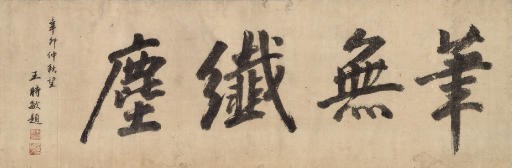 筆無纖塵
辛卯仲秋望
王時敏題